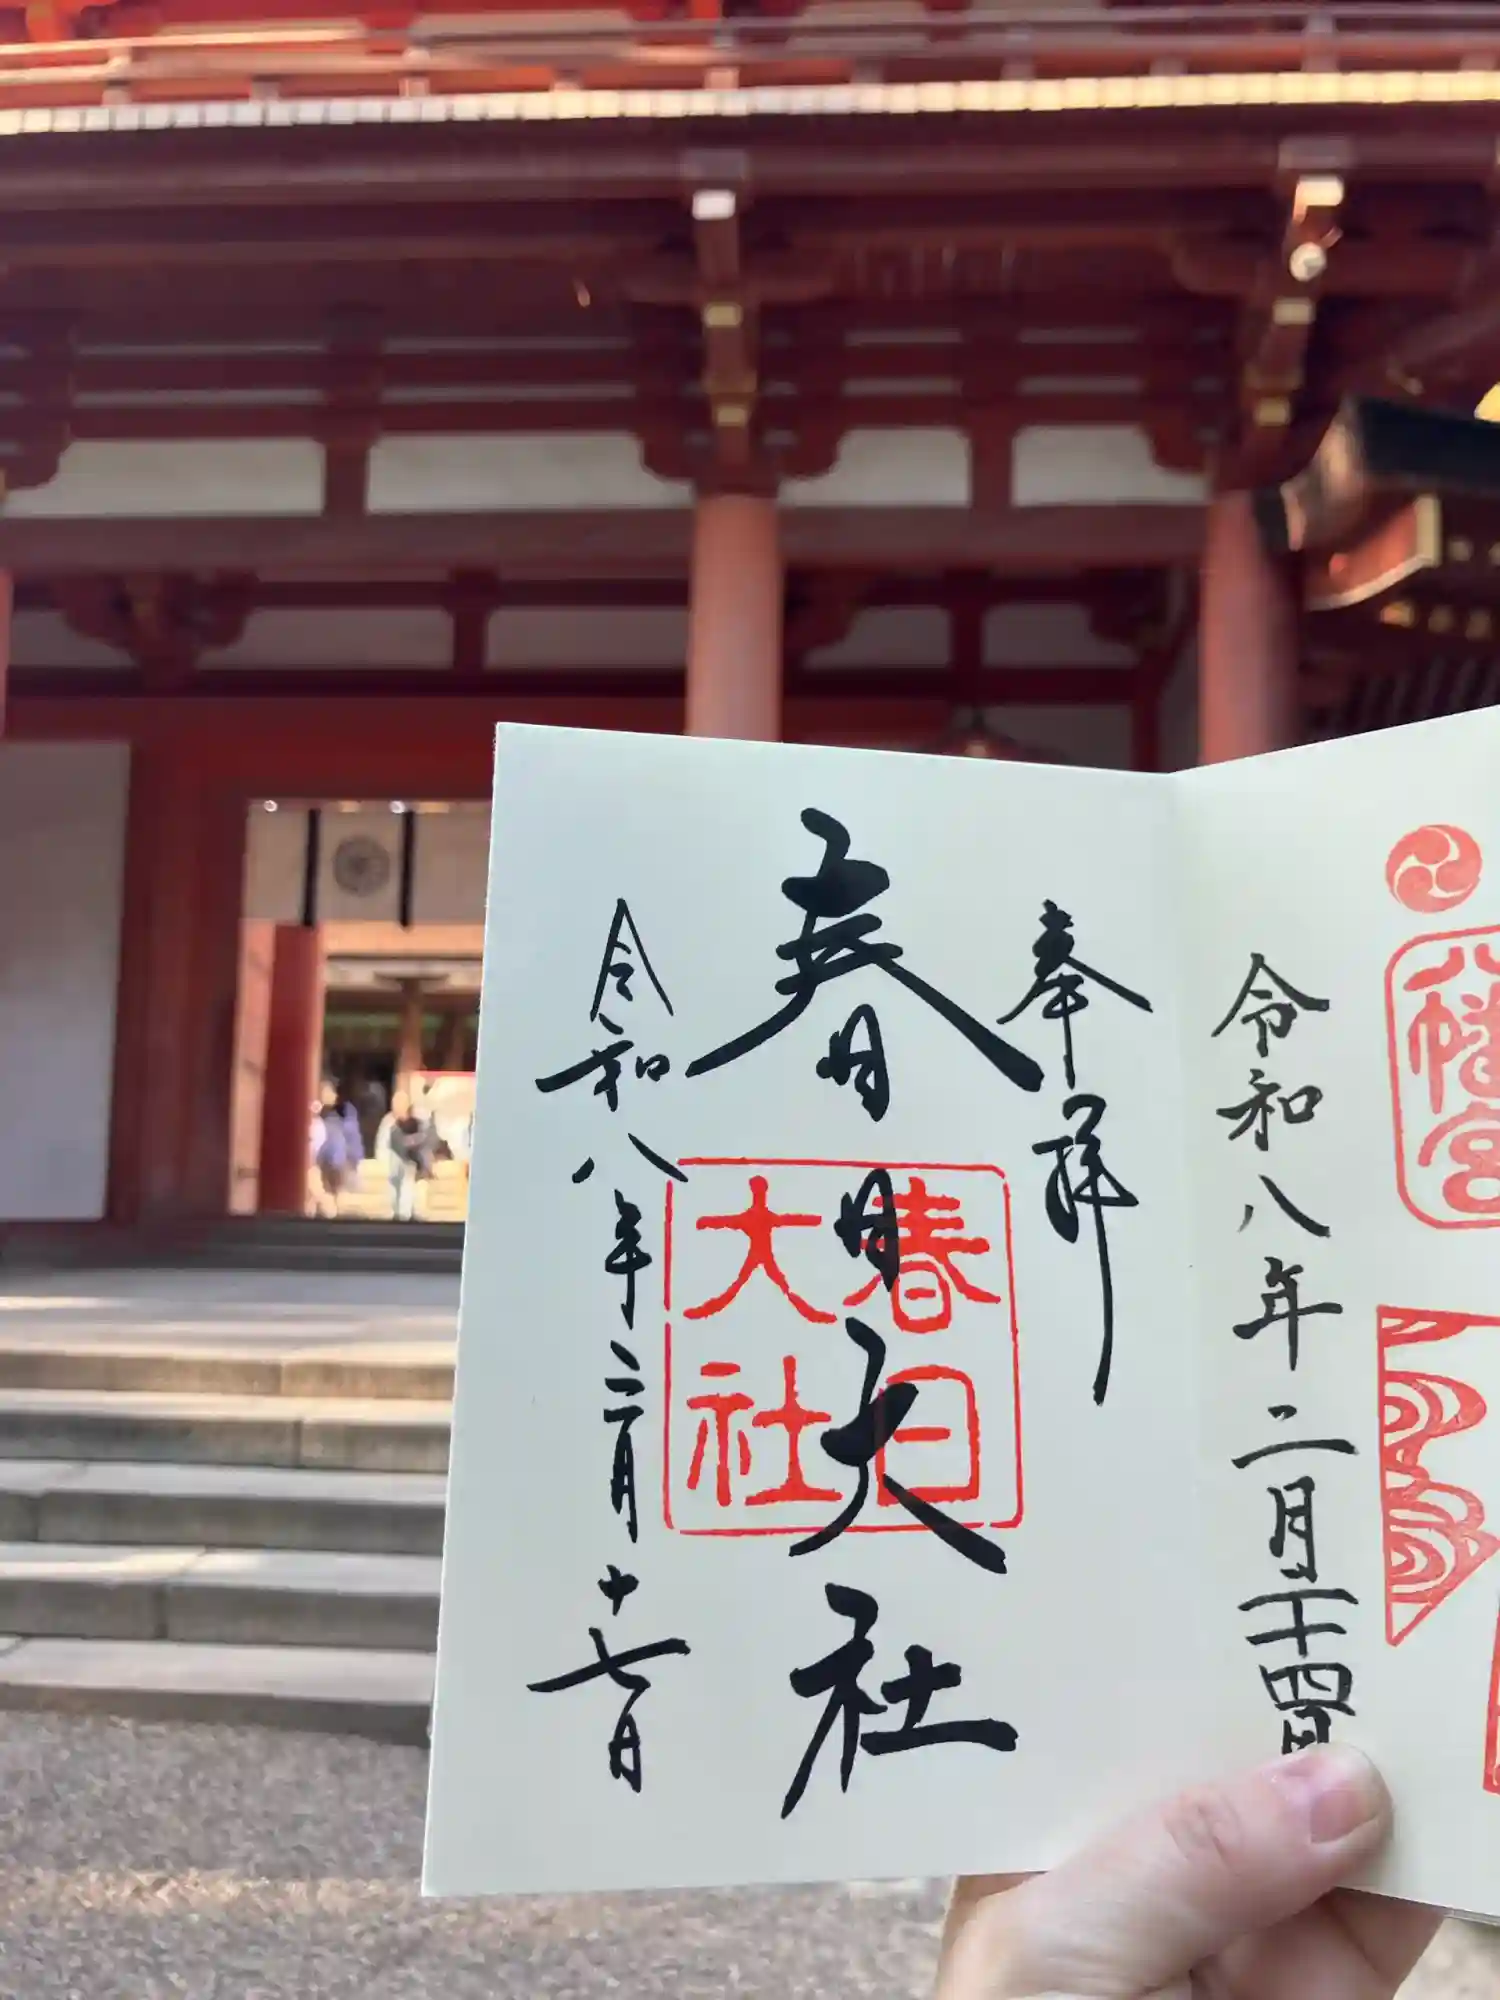 八幡宮
令和八年二月二十四日
奉拝
春日大社
春日
大社
令和八年二月十七日